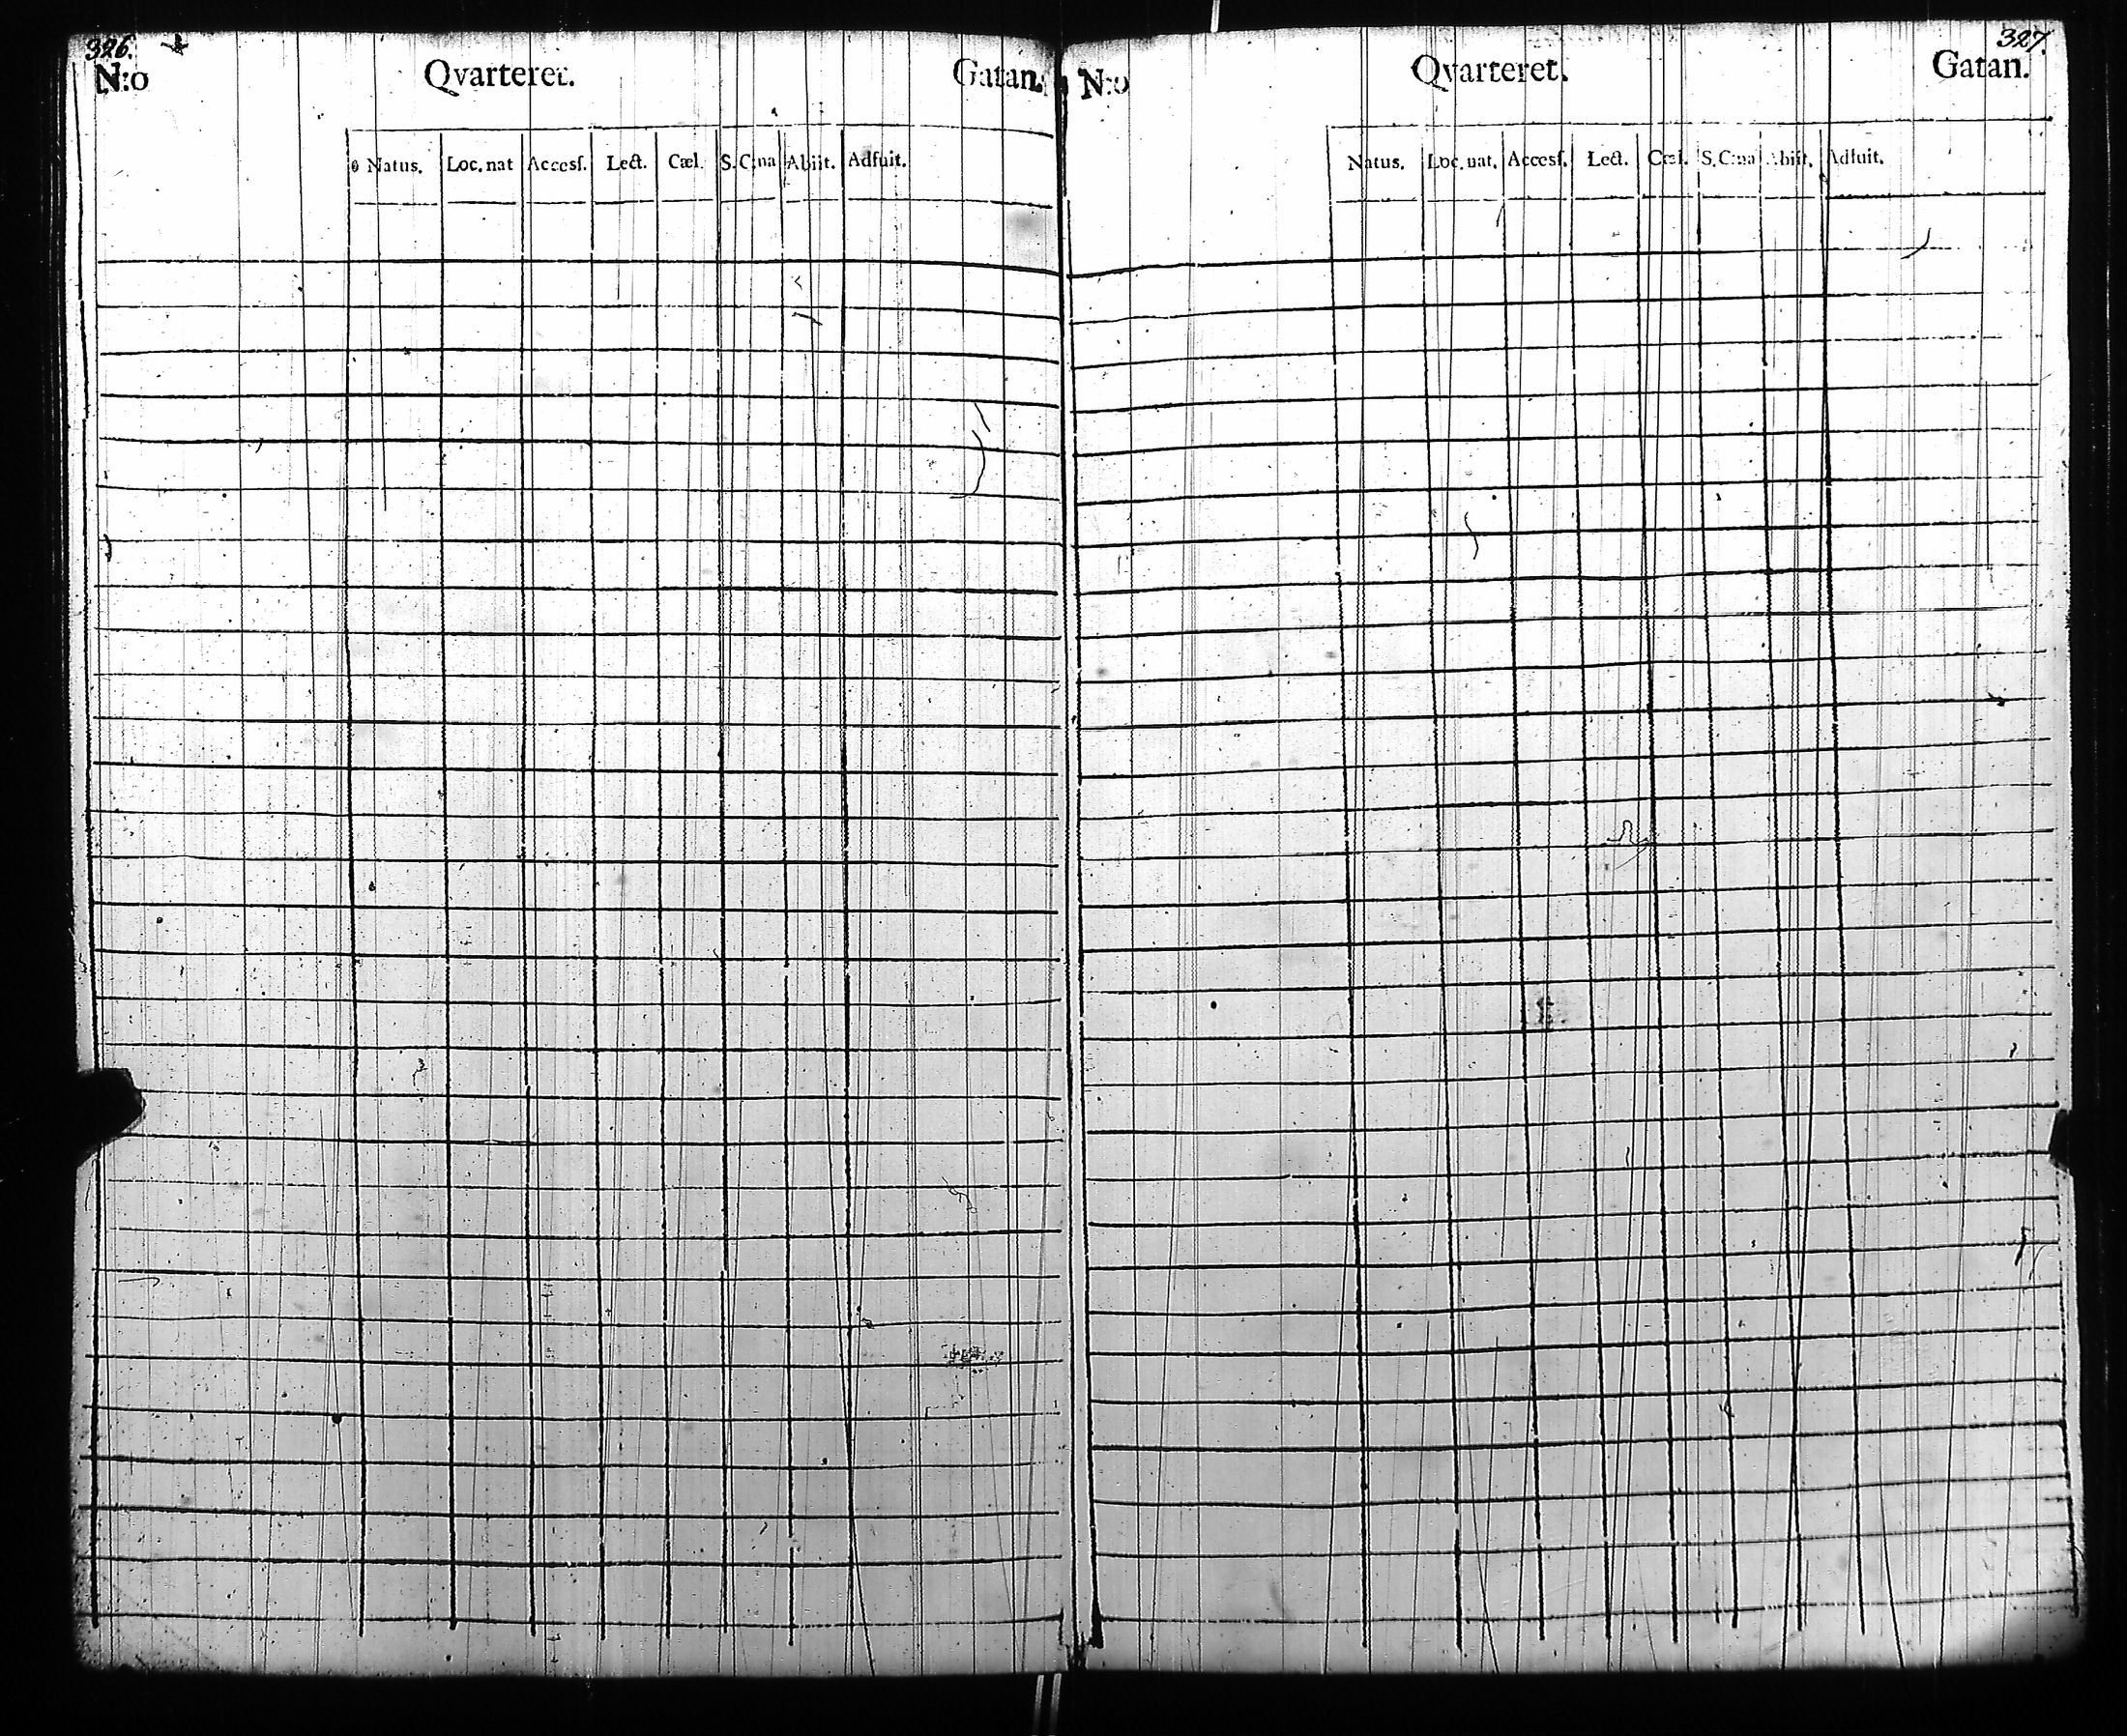 326.
N:o Qvarteret. Gatan.
Natus. Loc. nat Accesſ. Lect. Cæl. S. C:na Abiit. Adfuit.
327.
N:o Qvarteret. Gatan.
Natus. Loc. nat. Accesſ. Lect. Cæl. S. C:na Abiit. Adfuit.